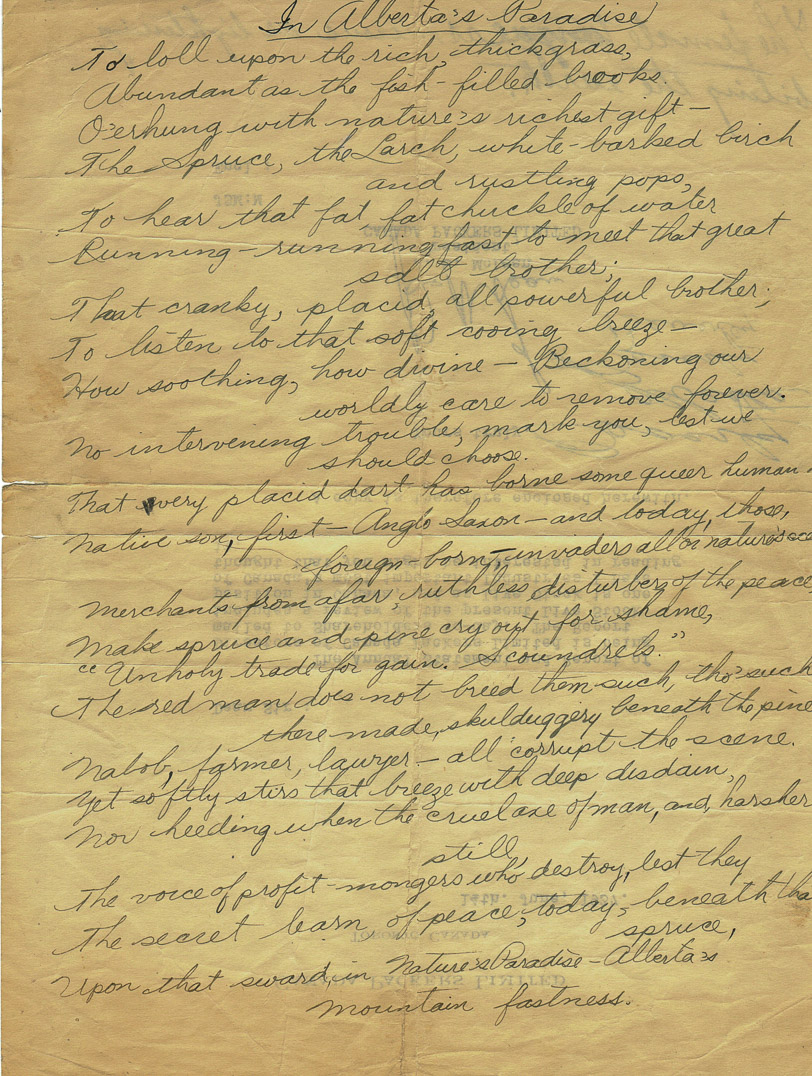 In Alberta's Paradise
To loll upon the rich, thickgrass,
Abundant as the fish-filled brooks.
O'erhung with nature's richest gift—
The Spruce, the Larch, white-barked birch
and rustling pops,
To hear that fat fat chuckle of water
Running—running fast to meet that great
salt brother;
That cranky, placid, all powerful brother;
To listen to that soft cooing breeze—
How soothing, how divine—Beckoning our
worldly care to remove forever.
No intervening trouble, mark you, lest we
should choose.
That very placid dart has borne some queer human
Native son, first—Anglo Saxon—and today, those,
foreign-born—invaders all on nature's
Merchants from afar, ruthless disturbers of the peace,
Make spruce and pine cry out for shame,
"Unholy trade for gain. Scoundrels."
The red man does not breed them such, tho' such
there made, skulduggery beneath the pine
Nabob, farmer, lawyer—all corrupt the scene.
Yet softly stirs that breeze with deep disdain,
Nor heeding when the cruel axe of man, and, harsher
still,
The voice of profit-mongers who destroy, lest they
The secret learn of peace, today, beneath
spruce,
Upon that sward, in Nature's Paradise—Alberta's
mountain fastness.